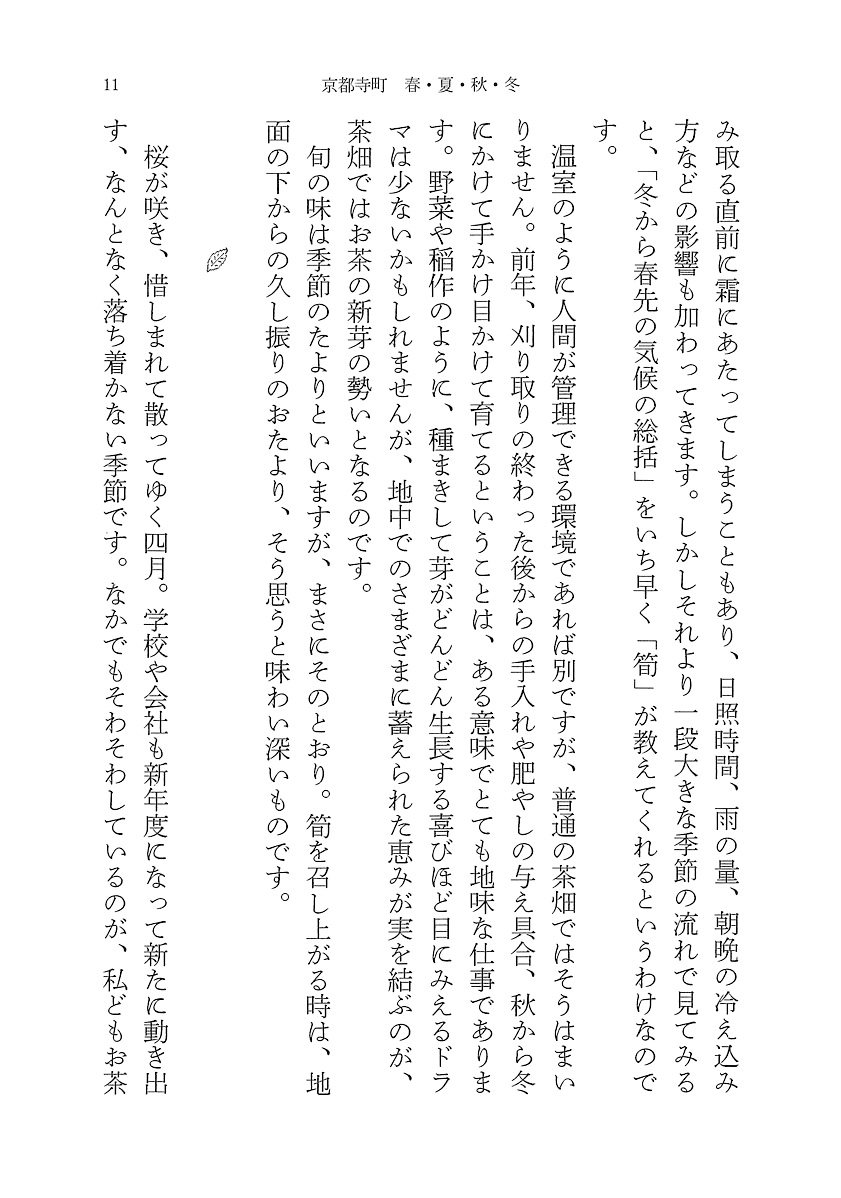 11
京都寺町　春・夏・秋・冬
み取る直前に霜にあたってしまうこともあり、日照時間、雨の量、朝晩の冷え込み
方などの影響も加わってきます。しかしそれより一段大きな季節の流れで見てみる
と、「冬から春先の気候の総括」をいち早く「筍」が教えてくれるというわけなので
す。
　温室のように人間が管理できる環境であれば別ですが、普通の茶畑ではそうはまい
りません。前年、刈り取りの終わった後からの手入れや肥やしの与え具合、秋から冬
にかけて手かけ目かけて育てるということは、ある意味でとても地味な仕事でありま
す。野菜や稲作のように、種まきして芽がどんどん生長する喜びほど目にみえるドラ
マは少ないかもしれませんが、地中でのさまざまに蓄えられた恵みが実を結ぶのが、
茶畑ではお茶の新芽の勢いとなるのです。
　旬の味は季節のたよりといいますが、まさにそのとおり。筍を召し上がる時は、地
面の下からの久し振りのおたより、そう思うと味わい深いものです。
　桜が咲き、惜しまれて散ってゆく四月。学校や会社も新年度になって新たに動き出
す、なんとなく落ち着かない季節です。なかでもそわそわしているのが、私どもお茶